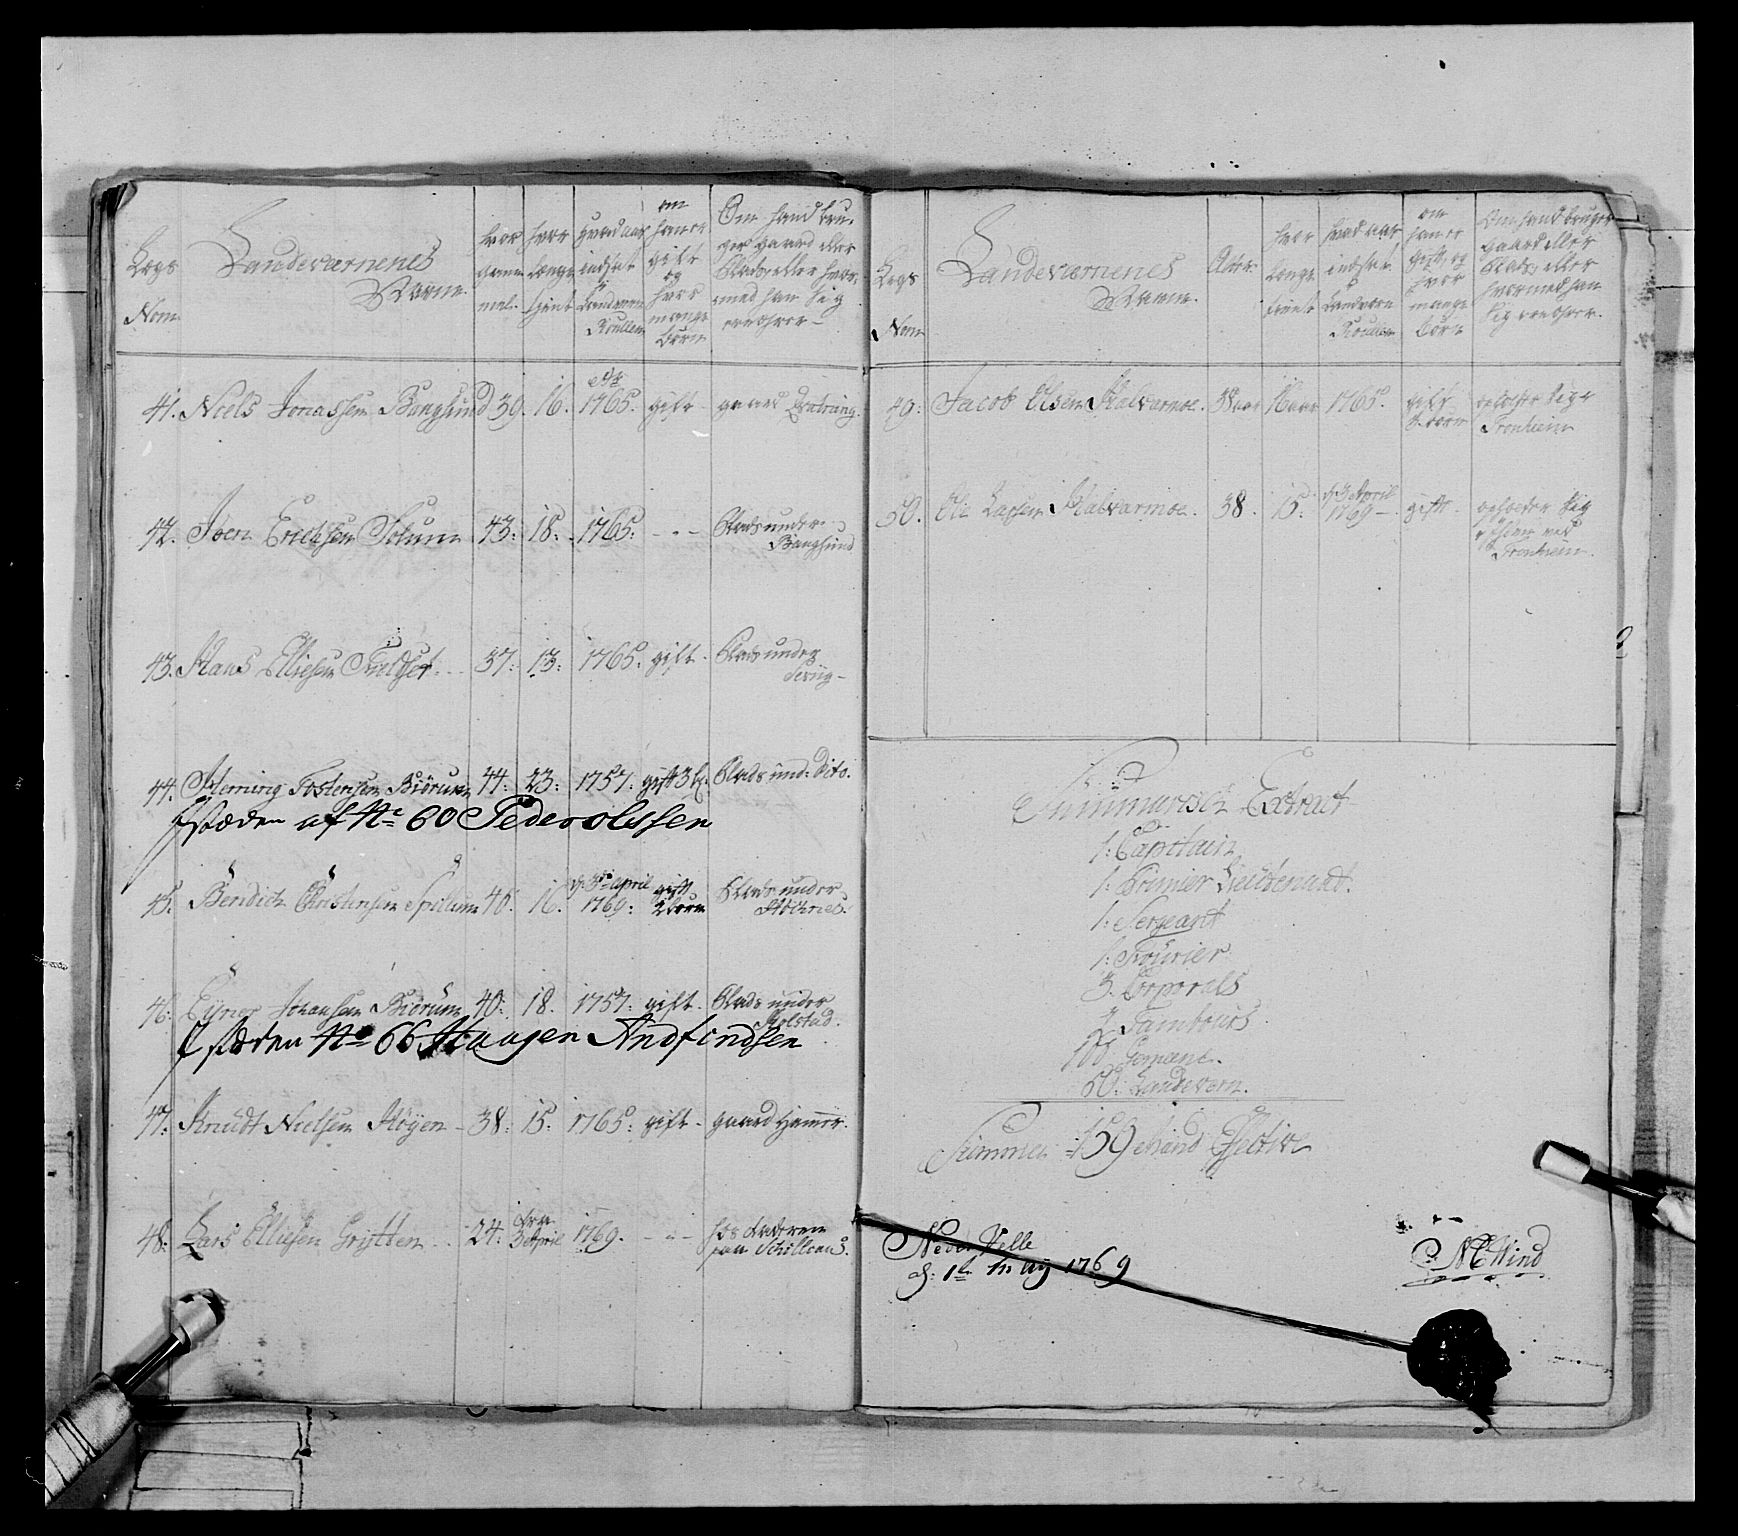 Legs
Nom
Landeværnenes
Navne
hvor
gam̄
mel.
hvor
længe
tient
hvad aar
indsat
i
Landværn
Roullen
om
han er
gift
og
hvor
mange
børn
Om hand bru-
ger gaard eller
Plads, eller hvor-
med han sig
ernährer
41. Niels Jonassen Bangsund 39. 16. 1765. gift gaard
42. Joen Erichsen Solum 43: 18: 1765: - - - Plads under
Bangsund
43. Hans Ellefsen 37: 13: 1765. gift Plads under
44. Hemnig Tostensen Biörum 44: 23: 1757: gift 3 b. Plads und: dito.
I stæden af No 60 Peder olsssen
45. Bendich Christensen Spillum 46. 16. d: 3de april 1769: gift 2 børn Plads under
46. Eÿner Johansen Biörum 40: 18. 1757: gift. Plads under
Holstad.
I stæden No 66 Haagen Andfindsen
47: Knudt Nielsen Höyen 38: 15: 1765: gift - gaard Hammer
48: Lars Ellefsen Grÿtten 24: fra 3 April 1769. - - - hos faderen
paa
Legs
Nom
Landeværnenes
Navne
Alder
hvor
længe
tient
hvad aar
indsat
i
Landværn
Roullen
om
han er
gift, og
hvor
mange
børn
Om hand bruger
gaard eller
Plads, eller
hvormed han
sig ernährer.
49: Jacob Olsen Halvarmoe. 38 aar 16 aar 1765. gift børn opholder sig i
Tronhiem
50. Ole Larsen Halvarmoe. 38. 15: d: 3 April 1769 gift. opholder sig
ved
Tronhiem.
Summarisk Extract
1: Capitain
1: Premier Lieutenant.
1: Sergeant
1: Fourier
3. Corporals
2 Tambours
100. Gemene.
50. Landevern.
Summa 159 Mand Effective
Neder Velle
d: 1te May 1769
MWind